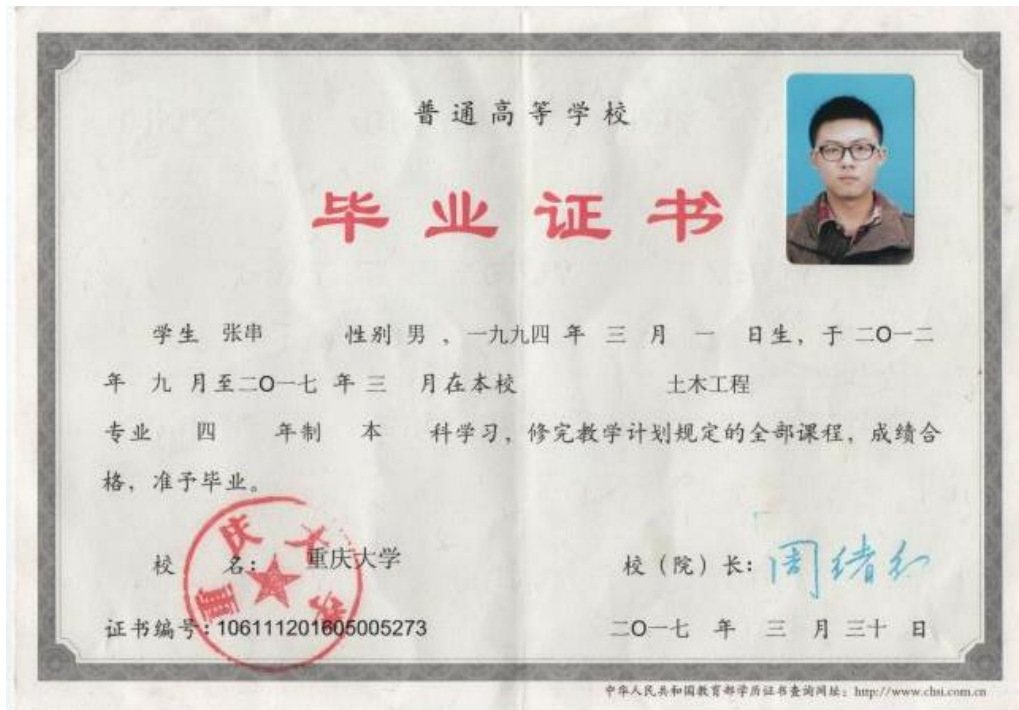 普通高等学校
毕业证书
学生 张串 性别 男 ，一九九四 年 三 月 一 日生，于 二O一二
年 九 月至二O一七 年 三 月在本校 土木工程
专业 四 年制 本 科学习，修完教学计划规定的全部课程，成绩合
格，准予毕业。
校 名：重庆大学
校（院）长：周绪红
重庆大学
证书编号：106111201605005273
二O一七 年 三 月 三十 日
中华人民共和国教育部学历证书查询网址：http://www.chsi.com.cn